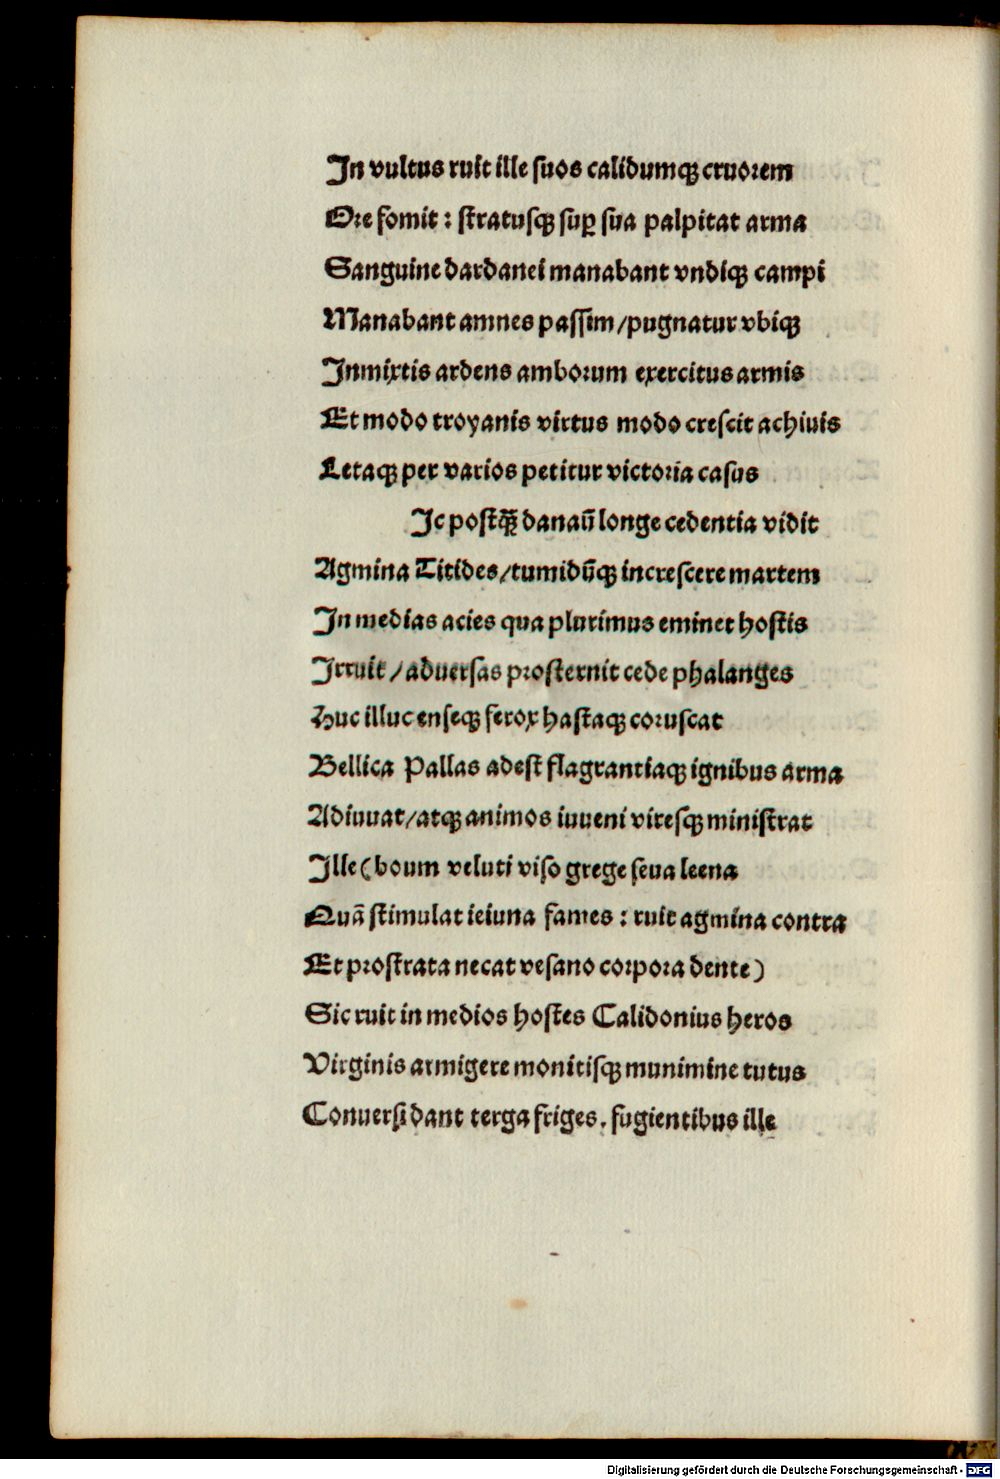 In vultus ruit ille ſuos calidumqꝫ cruorem
Ore fomit : ſtratuſqꝫ ſuꝑ ſua palpitat arma
Sanguine dardanei manabant vndiqꝫ campi
Manabant amnes paſſim / pugnatur vbiqꝫ
Inmixtis ardens amborum exercitus armis
Et modo troyanis virtus modo creſcit achiuis
Letaqꝫ per varios petitur victoria caſus
Ic poſtq̃ꝫ danaū longe cedentia vidit
Agmina Titides / tumidūqꝫ increſcere martem
In medias acies qua plurimus eminet hoſtis
Irruit / aduerſas proſternit cede phalanges
Huc illuc enſeqꝫ ferox haſtaqꝫ coruſcat
Bellica Pallas adeſt flagrantiaqꝫ ignibus arma
Adiuuat / atqꝫ animos iuueni vireſqꝫ miniſtrat
Ille ( boum veluti viſo grege ſeua leena
Quā ſtimulat ieiuna fames : ruit agmina contra
Et proſtrata necat veſano corpora dente )
Sic ruit in medios hoſtes Calidonius heros
Virginis armigere monitiſqꝫ munimine tutus
Conuerſi dant terga friges . fugientibus ille
Digitalisierung gefördert durch die Deutsche Forschungsgemeinschaft - DFG